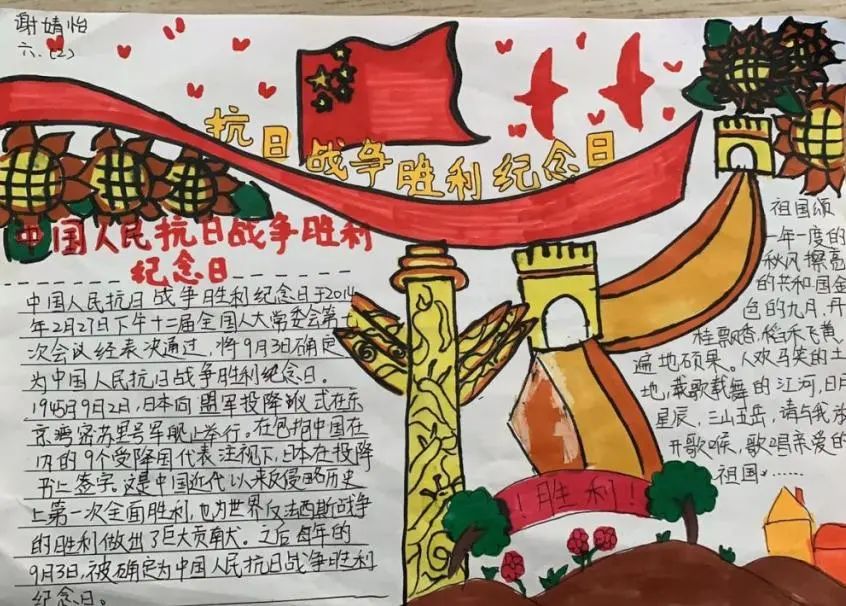 谢婧怡
六.(2)
抗日战争胜利纪念日
中国人民抗日战争胜利
纪念日
中国人民抗日战争胜利纪念日于2014
年2月27日下午十二届全国人大常委会第七
次会议经表决通过，将9月3日确定
为中国人民抗日战争胜利纪念日。
1945年9月2日，日本向盟军投降仪式在东
京湾密苏里号军舰上举行。在包括中国在
内的9个受降国代表注视下，日本在投降
书上签字。这是中国近代以来反侵略历史
上第一次全面胜利，也为世界反法西斯战争
的胜利做出了巨大贡献。之后每年的
9月3日，被确定为中国人民抗日战争胜利
纪念日。
祖国颂
一年一度的
秋风，擦亮
的共和国金
色的九月，丹
桂飘香，稻禾飞黄，
遍地硕果。人欢马笑的土
地，载歌载舞的江河，日月
星辰，三山五岳，请与我放
开歌喉，歌唱亲爱的
祖国......
！胜利！